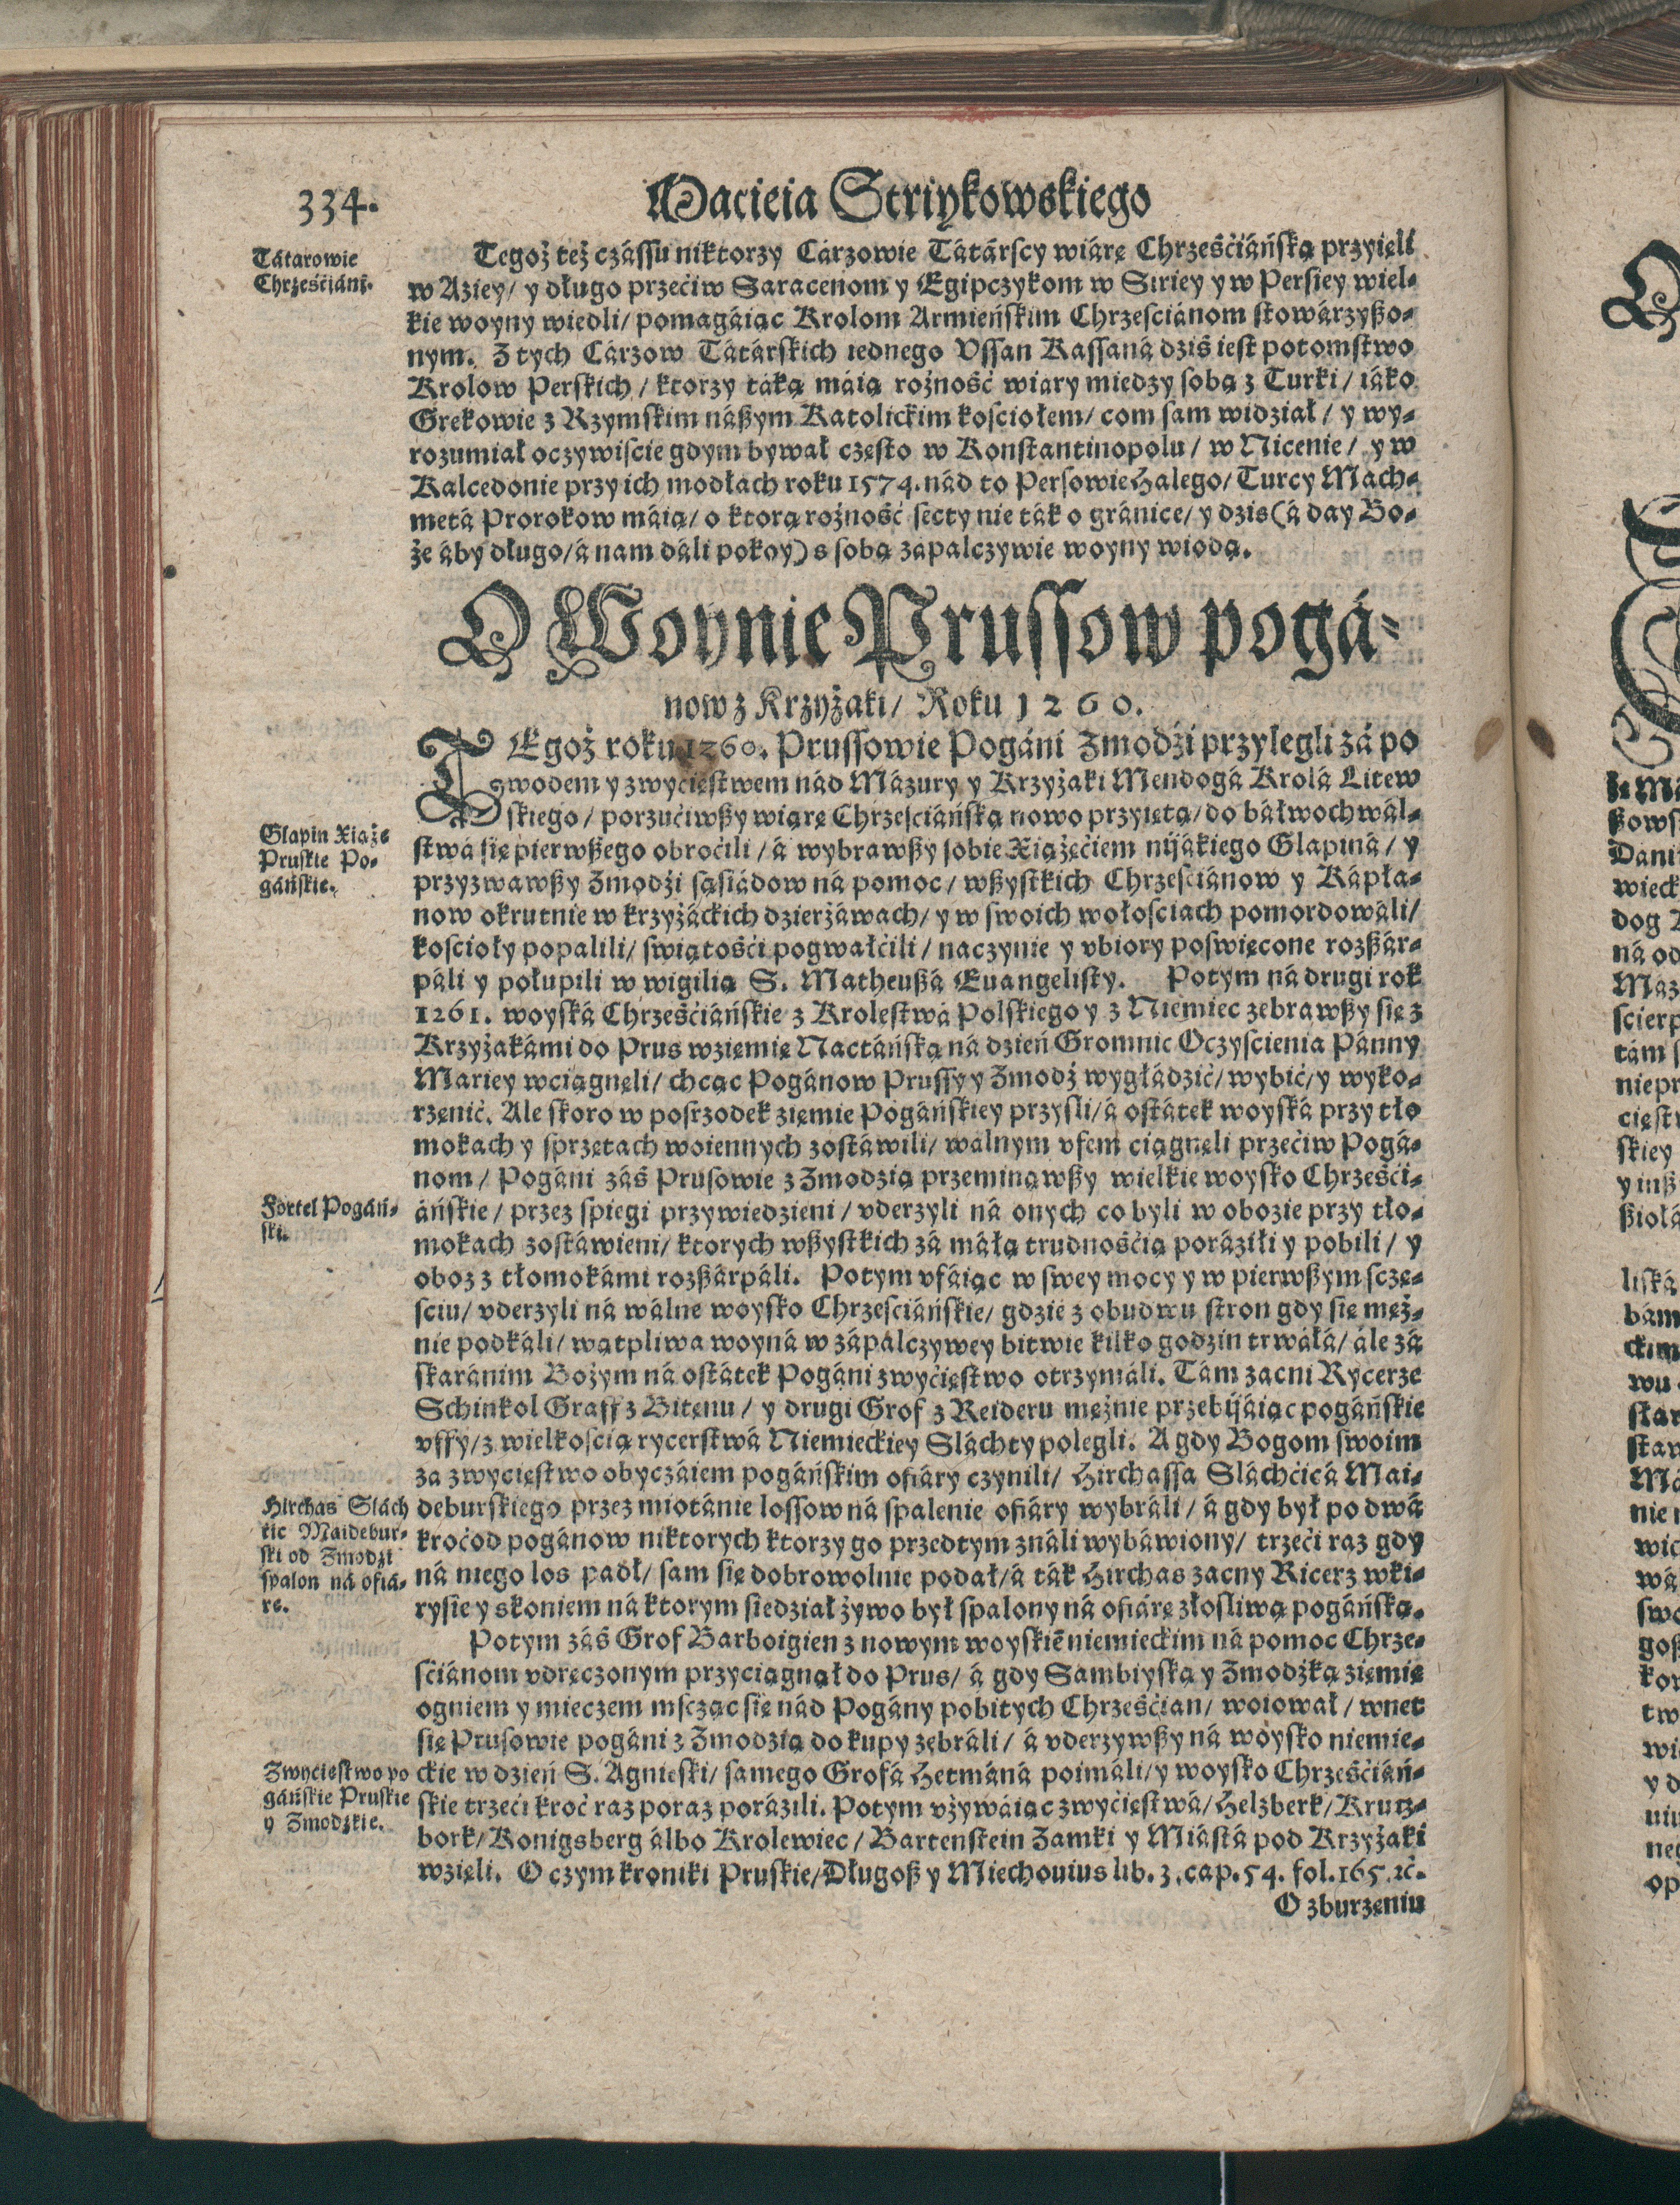 334.
Macieia Striykowskiego
Tátarowie
Chrześćiáni.
Tegoż też czássu niktorzy Cárzowie Tátárscy wiárę Chrześćiáńską przyięli
w Aziey/ y długo przećiw Saracenom y Egipczykom w Siriey y w Persiey wiel-
kie woyny wiedli/ pomagáiąc Krolom Armieńskim Chrzesciánom stowárzyszo-
nym. Z tych Cárzow Tátárskich iednego Vssan Kassaná dziś iest potomstwo
Krolow Perskich/ ktorzy táką máią rożność wiary miedzy sobą z Turki/ iáko
Grekowie z Rzymskim nászym Katolickim kosciołem/ com sam widział/ y wy-
rozumiał oczywiscie gdym bywał często w Konstantinopolu/ w Nicenie/ y w
Kalcedonie przy ich modłach roku 1574. nád to Persowie Halego/ Turcy Mach-
metá Prorokow máią/ o ktorą rożność secty nie ták o gránice/ y dzis (á day Bo-
że áby długo/ á nam dáli pokoy) s sobą zápalczywie woyny wiodą.
O Woynie Prussow pogá-
now z Krzyżaki/ Roku 1260.
TEgoż roku 1260. Prussowie Pogáni Zmodźi przylegli zá po
wodem y zwyćięstwem nád Mázury y Krzyżaki Mendogá Krolá Litew
skiego/ porzućiwszy wiárę Chrzesciáńską nowo przyiętą/ do báłwochwál-
stwá się pierwszego obroćili/ á wybrawszy sobie Xiążęćiem nijákiego Glapiná/ y
przyzwawszy Zmodźi sąsiádow ná pomoc/ wszystkich Chrzesciánow y Kápła-
now okrutnie w krzyżáckich dzierżáwach/ y w swoich wołosciach pomordowáli/
koscioły popalili/ swiątośći pogwałćili/ naczynie y vbiory poswięcone rozszár-
páli y połupili w wigilią S. Matheuszá Euangelisty. Potym ná drugi rok
1261. woyská Chrześćiáńskie z Krolestwá Polskiego y z Niemiec zebrawszy się z
Krzyżakámi do Prus w ziemię Nactáńską ná dzień Gromnic Oczyscienia Pánny
Mariey wciągnęli/ chcąc Pogánow Prussy y Zmodź wygłádzić/ wybić/ y wyko-
rzenić. Ale skoro w posrzodek ziemie Pogáńskiey przysli/ á ostátek woyská przy tło
mokach y sprzętach woiennych zostáwili/ wálnym vfem ciągnęli przećiw Pogá-
nom/ Pogáni záś Prusowie z Zmodzią przeminąwszy wielkie woysko Chrześći-
áńskie/ przez spiegi przywiedzieni/ vderzyli ná onych co byli w obozie przy tło-
mokach zostáwieni/ ktorych wszystkich zá máłą trudnośćią poráziłi y pobili/ y
oboz z tłomokámi rozszárpáli. Potym vfáiąc w swey mocy y w pierwszym sczę-
sciu/ vderzyli ná wálne woysko Chrzesciáńskie/ gdzie z obudwu stron gdy się męż-
nie podkáli/ wątpliwa woyná w zápálczywey bitwie kilko godzin trwáłá/ ále zá
skaránim Bożym ná ostátek Pogáni zwyćięstwo otrzymáli. Tám zacni Rycerze
Schinkol Graff z Bitenu/ y drugi Grof z Reideru mężnie przebijáiąc pogáńskie
vffy/ z wielkoscią rycerstwá Niemieckiey Sláchty polegli. A gdy Bogom swoim
za zwycięstwo obyczáiem pogáńskim ofiáry czynili/ Hirchassa Sláchćicá Mai-
deburskiego przez miotánie lossow ná spalenie ofiáry wybráli/ á gdy był po dwá
kroć od pogánow niktorych ktorzy go przedtym ználi wybáwiony/ trzeći raz gdy
ná niego los padł/ sam się dobrowolnie podał/ á ták Hirchas zacny Ricerz w ki-
rysie y s koniem ná ktorym siedział żywo był spalony ná ofiárę złosliwą pogáńską.
Potym záś Grof Barboigien z nowym woyskiē niemieckim ná pomoc Chrze-
sćiánom vdręczonym przyciągnął do Prus/ á gdy Sambiyską y Zmodźką ziemię
ogniem y mieczem msczącsię nád Pogány pobitych Chrześćian/ woiował/ wnet
się Prusowie pogáni z Zmodzią do kupy zebráli/ á vderzywszy ná woysko niemie-
ckie w dzień S. Agnieski/ samego Grofá Hetmáná poimáli/ y woysko Chrześćiáń-
skie trzeći kroć raz poraz porázili. Potym vżywáiąc zwyćięstwá/ Helzberk/ Krutz-
bork/ Konigsberg álbo Krolewiec/ Bartenstein Zamki y Miástá pod Krzyżaki
wzięli. O czym kroniki Pruskie/ Długosz y Miechouius lib. 3. cap. 54. fol. 165. ꝛc.
O zburzeniu
Glapin Xiążę
Pruskie Po-
gáńskie.
Fortel Pogáń-
ski.
Hirchas Slách
cic Maidebur-
ski od Zmodzi
spalon ná ofiá-
rę.
Zwyćięstwo po
gáńskie Pruskie
y Zmodzkie.